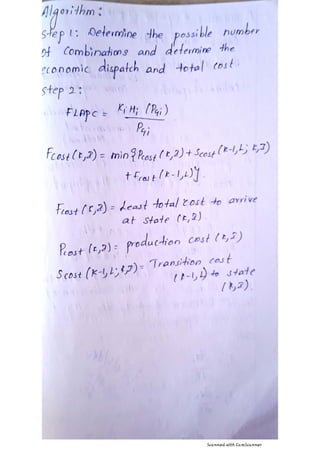 Algorithm :
Step 1 : Determine the possible number
of Combinations and determine the
economic dispatch and total cost.
Step 2 :
FLAPC = Ki Hi (PGi)
PGi
Fcost (K,I) = min { Pcost (K,I) + Scost (K-1,L; K,I)
+ Fcost (K-1,L) } .
Fcost (K,I) = Least total cost to arrive
at state (K,I).
Pcost (K,I) = production cost (K,I)
Scost (K-1,L; K,I) = Transition cost
(K-1,L) to state
(K,I).
Scanned with CamScanner